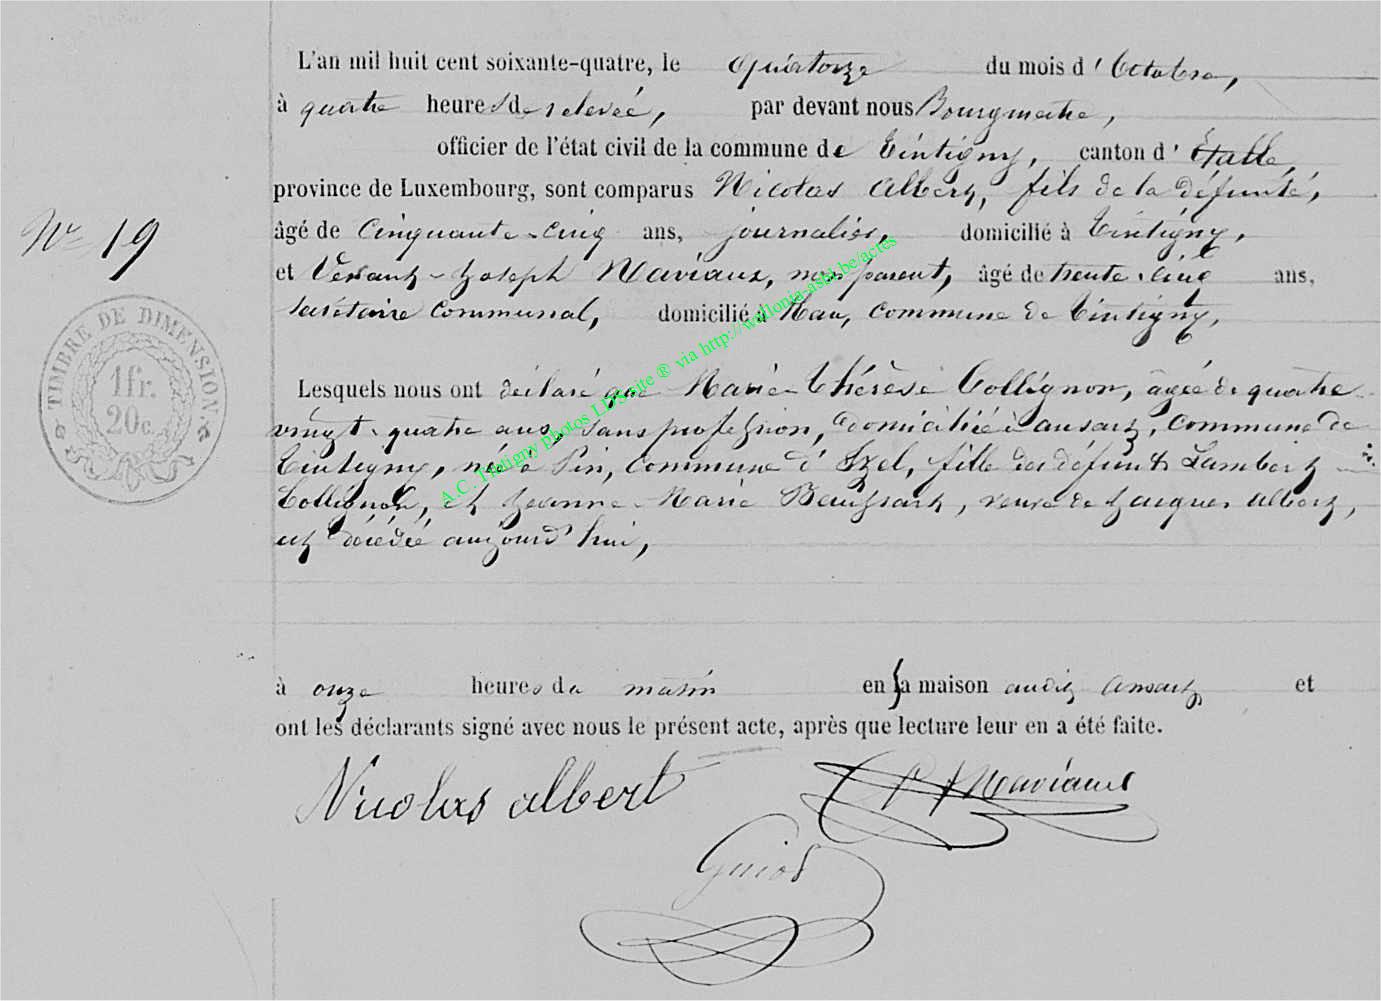 L'an mil huit cent soixante-quatre, le quatorze du mois d'Octobre,
à quatre heures de relevée, par devant nous Bourgmestre,
officier de l'état civil de la commune de Tintigny, canton d'Étalle,
province de Luxembourg, sont comparus Nicolas Albert, fils de la défunte,
Nº 19
âgé de cinquante-cinq ans, journalier, domicilié à Tintigny,
et Venant-Joseph Maviaux, non parent, âgé de trente-cinq ans,
secrétaire communal, domicilié à Han, commune de Tintigny,
TIMBRE DE DIMENSION.
1 fr.
20 c.
Lesquels nous ont déclaré que Marie-Thérèse Collignon, âgée de quatre
vingt-quatre ans, sans profession, domiciliée à ansart, commune de
Tintigny, née à Pin, commune d'Izel, fille des défunts Lambert
Collignon, et Jeanne-Marie Baussart, veuve de Jacques Albert,
est décédée aujourd'hui,
à onze heures du matin en sa maison audit Ansart, et
ont les déclarants signé avec nous le présent acte, après que lecture leur en a été faite.
Nicolas albert
Maviaux
Guiot
A.C. Tintigny photos LDSsite ® via http://wallonia-asbl.be/actes